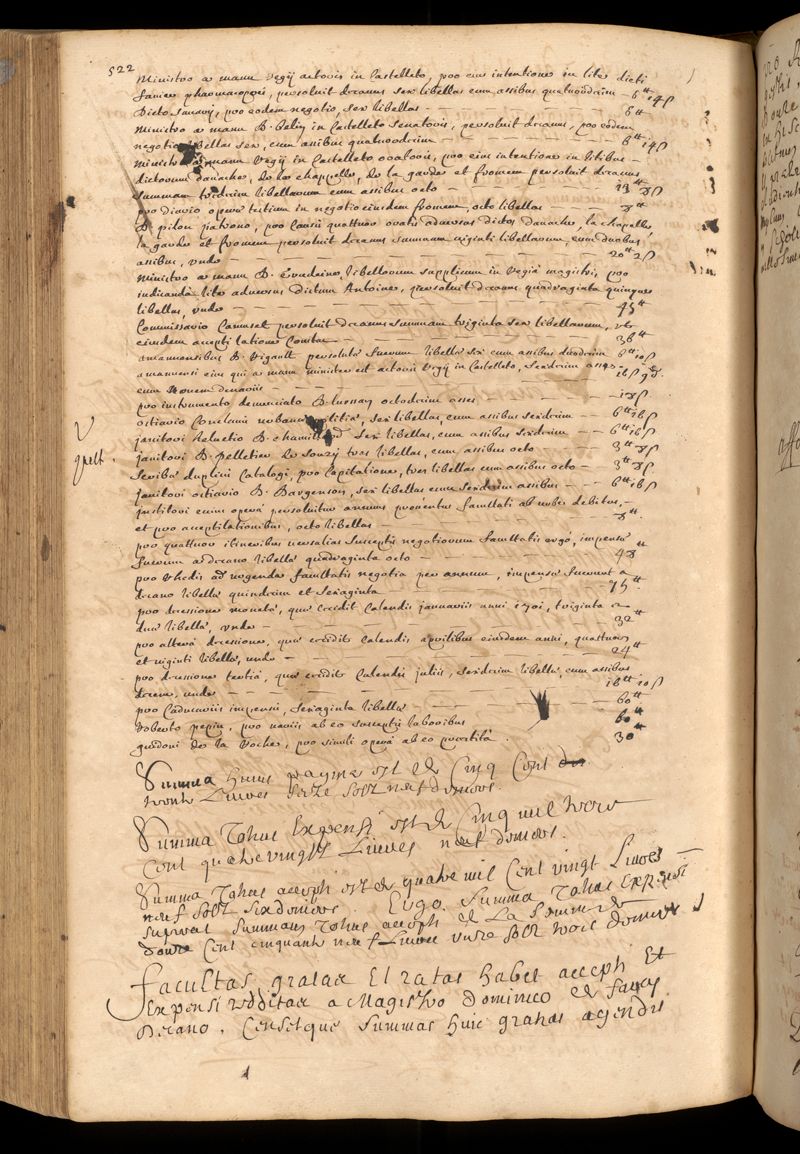 522
Ministro a manu Regij actoris in Castelleto, pro eius intentione in lite dicti
pharmacopoei, persoluit decanus sex libellas cum assibus quatuordecim — 6tt 14 s
Dicto , pro eodem negotio, sex libellas — 6tt
Ministro a manu D. in Castelleto Senatoris, persoluit decanus, pro eodem
negotio libellas sex, cum assibus quatuordecim — 6tt 14 s
Ministro a manu Regij in Castelleto oratoris, pro eius intentione in litibus
dictorum danache, de la chappelle, de la garde et fromem persoluit decanus
summam tredecim libellarum cum assibus octo — 13tt 8 s
pro Diario operis tertium in negotio eiusdem fromem, octo libellas — 8tt
D. pilon patrono, pro causis quattuor oratis adversus dictos danache, la chapelle,
la garde et fromem persoluit decanus summam viginti libellarum, cum duobus
assibus, unde — 20tt 2 s
Ministro a manu D. libellorum supplicum in Regia magistri, pro
iudicanda lite adversus dictum Antoine, persoluit decanus quadraginta quinque
libellas, unde — 45tt
Commissario Camuset persoluit decanus summam triginta sex libellarum,
eiusdem accepti latione constat — 36tt
amanuensibus D. Rigault persoluta fuerunt libellae sex cum assibus duodecim
amanuensi eius qui a manu minister est actoris Regij in Castelleto, sexdecim asses
cum novem denariis — 16 s 9 d.
pro instrumento denunciato D. octodecim asses — 18 s
ostiario Curiae urbanae militiae, sex libellas, cum assibus sexdecim — 6tt 16 s
janitori helvetio D. chamillard sex libellas, cum assibus sexdecim — 6tt 16 s
janitori D. pelletier de souzy tres libellas, cum assibus octo — 3tt 8 s
scribae duplicis Catalogi, pro Capitatione, tres libellas cum assibus octo — 3tt 8 s
janitori ostiario D. Dargenson, sex libellas cum sexdecim assibus — 6tt 16 s
Institori cuius opera persoluitur annuus proventus facultati ab urbe debitus,
et pro acceptilationibus, octo libellas — 8tt
pro quattuor itineribus versalias susceptis negotiorum facultatis ergo, impensae
fuerunt a decano libellae quadraginta octo — 48tt
pro rhedis ad urgenda facultatis negotia per annum, impensae fuerunt a
decano libellae quindecim et sexaginta — 75tt
pro decessione monetae, quae accidit Calendis januarii anni 1701, triginta
duae libellae, unde — 32tt
pro altera decessione, quae accidit Calendis aprilibus eiusdem anni, quattuor
et viginti libellae, unde — 24tt
pro decessione tertia, quae accidit Calendis julii, sexdecim libellae, cum assibus
decem, unde — 16tt 10 s
pro Cadaveris impensis, sexaginta libellae — 60tt
Roberto pepin, pro variis ab eo susceptis laboribus — 60tt
guidoni de la Roche, pro simili opera ab eo praestita — 30tt
Summa huius paginae est de Cinq Cent
trente Livres seize solz neuf deniers.
Summa Totius Expensi est de Cinq mil trois
Cent quatrevingts Livres neuf deniers.
Summa Totius accepti est de quatre mil Cent vingt Livres
neuf solz six deniers. Ergo Summa Totius Expensi
superat summam Totius accepti de La Somme de
douze Cent cinquante neuf Livres unze solz trois deniers
Facultas gratas Et ratas habet accepti Et
Expensi redditas a Magistro dominico de farcy
Decano, Censetque summas huic gratias agendas